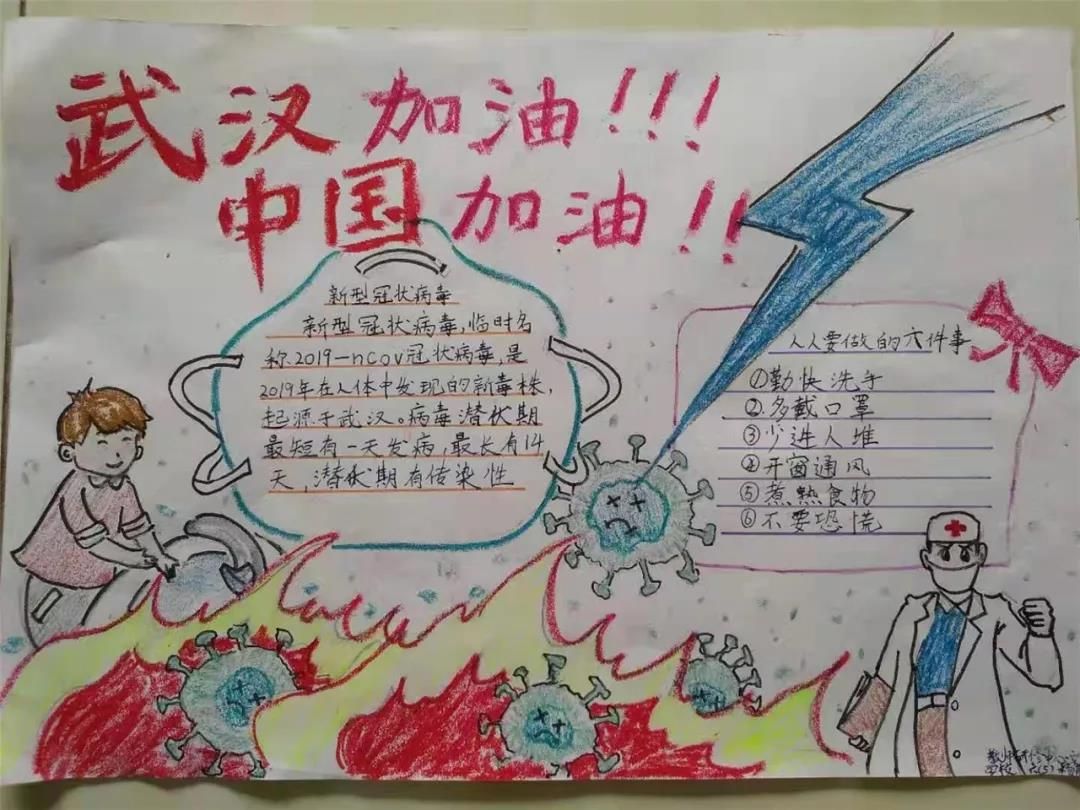 武汉加油!!!
中国加油!!
新型冠状病毒
新型冠状病毒,临时名
称2019-nCov冠状病毒,是
2019年在人体中发现的新毒株,
起源于武汉。病毒潜伏期
最短有一天发病,最长有14
天,潜伏期有传染性
人人要做的六件事
①勤快洗手
②.多戴口罩
③少进人堆
④开窗通风
⑤煮熟食物
⑥不要恐慌